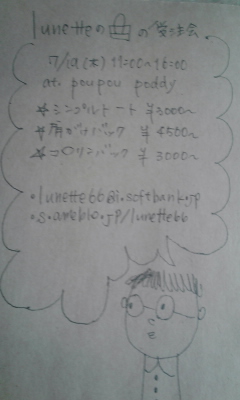 lunetteの凸の受注会
7/19(木) 11:00~16:00
at. poupou poddy
☆シンプルトート ¥3000~
☆肩がけバック ¥4500~
☆コロリンバック ¥3000~
・lunette66@i.softbank.jp
・s.ameblo.jp/lunette66